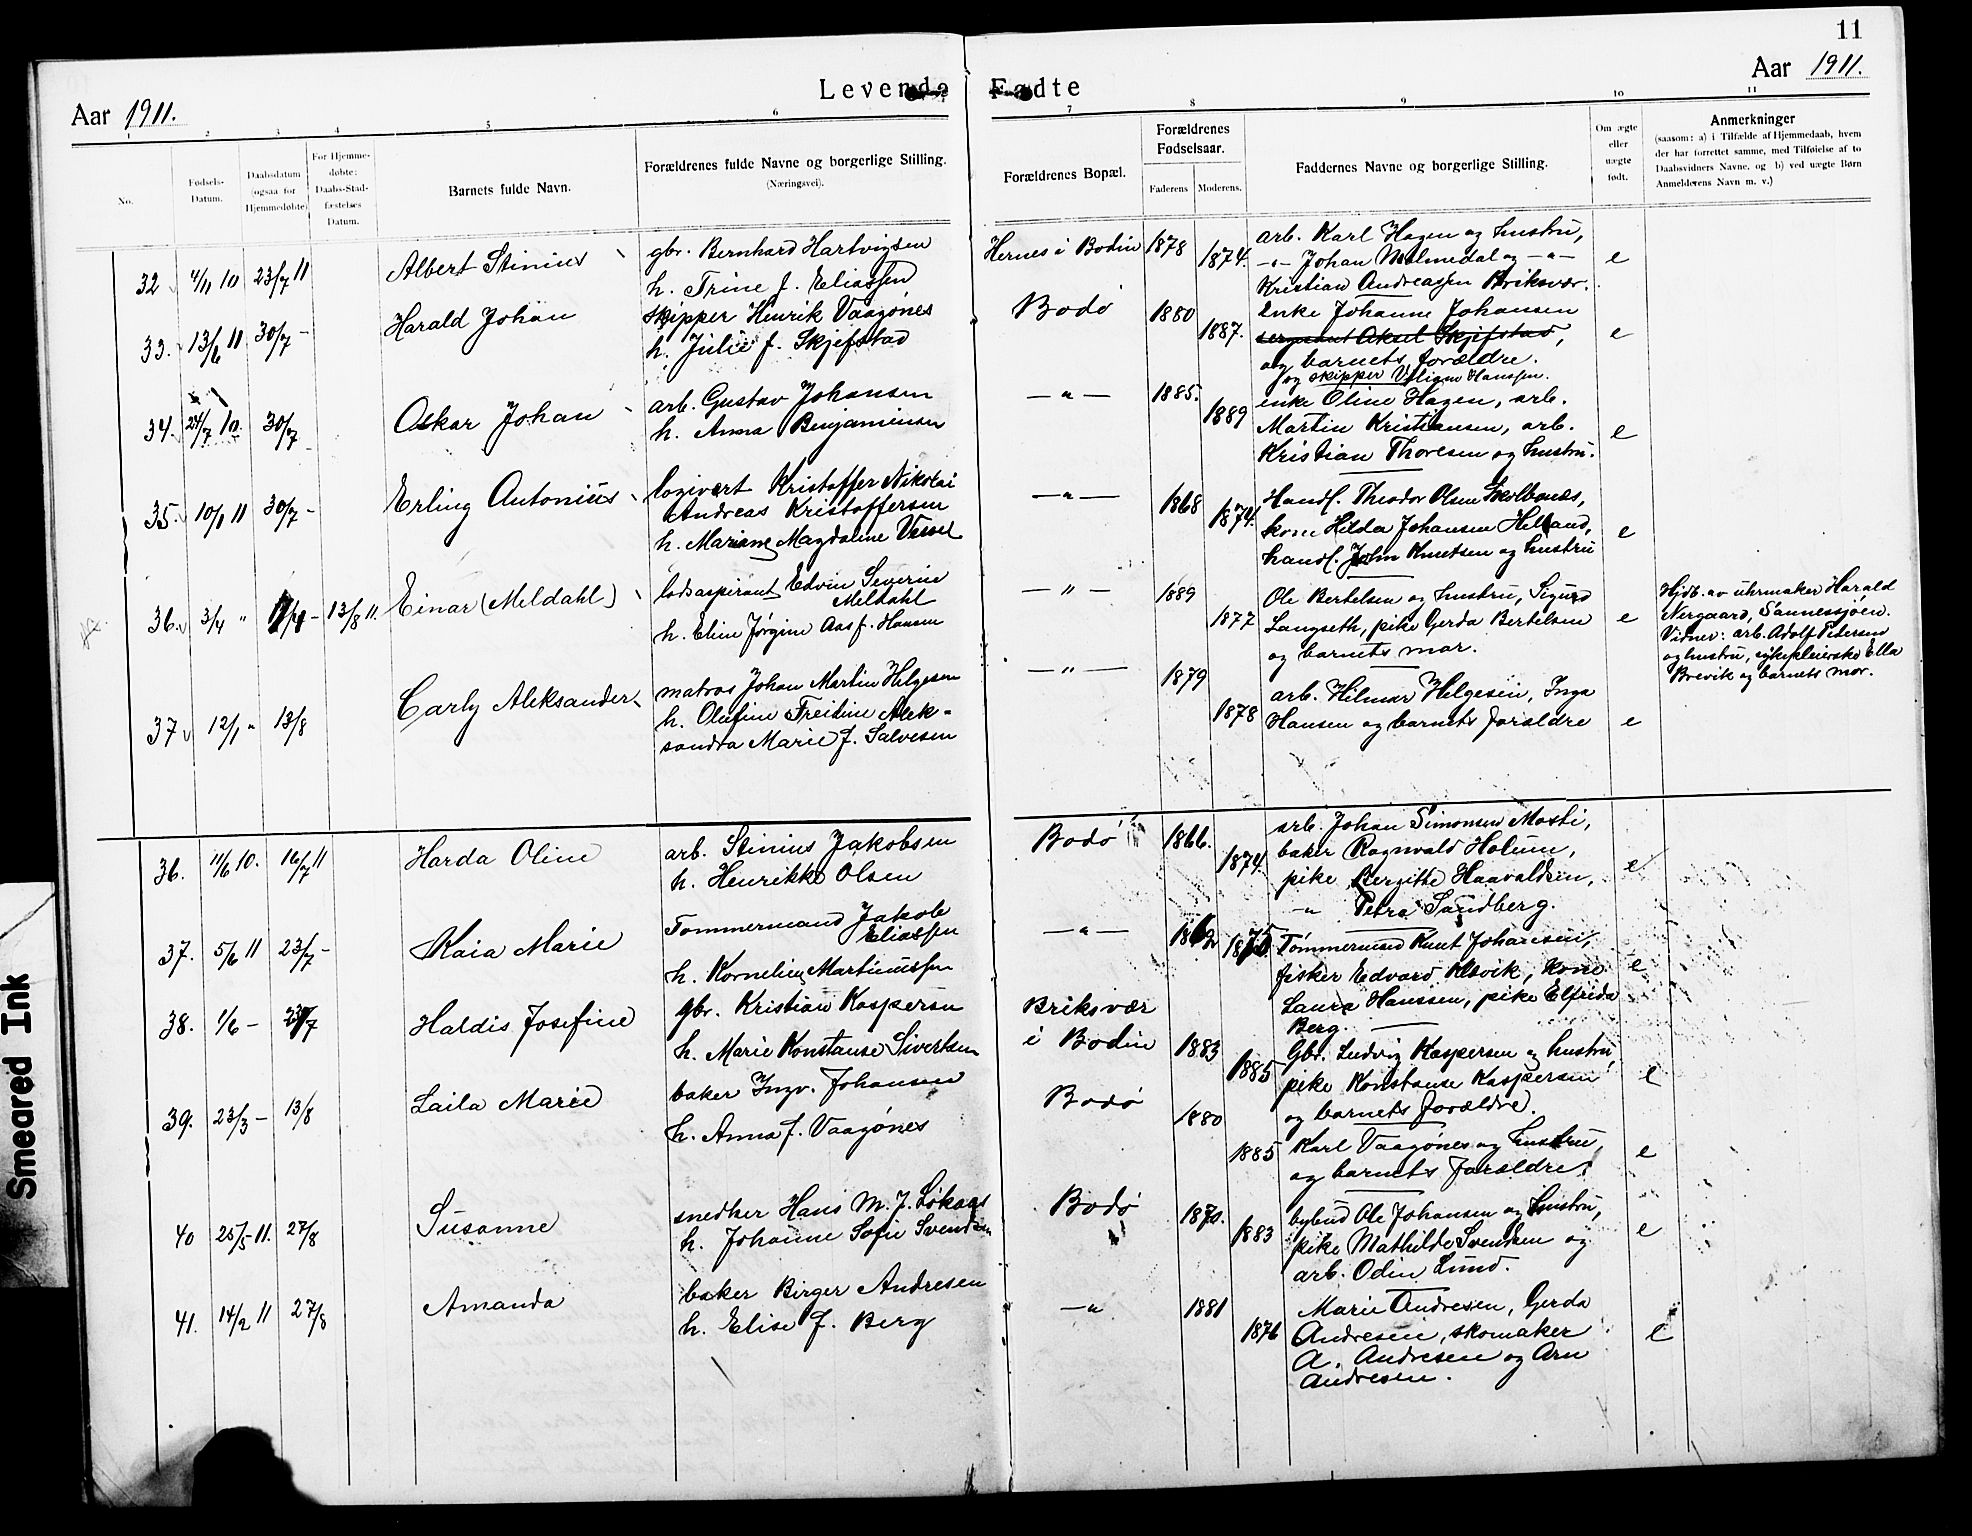 11
Levende Fødte
Aar 1911.
Aar 1911.
1 2 3 4 5 6 7 8 9 10 11
No.
Fødsels-
Datum.
Daabsdatum
(ogsaa for
Hjemmedøbte)
For Hjemme-
døbte:
Daabs-Stad-
fæstelses
Datum.
Barnets fulde Navn.
Forældrenes fulde Navne og borgerlige Stilling.
(Næringsvei).
Forældrenes Bopæl.
Forældrenes
Fødselsaar.
Faderens Moderens.
Faddernes Navne og borgerlige Stilling.
Om ægte
eller
uægte
født.
Anmerkninger
(saasom: a) i Tilfælde af Hjemmedaab, hvem
der har forrettet samme, med Tilføielse af to
Daabsvidners Navne, og b) ved uægte Børn
Anmelderens Navn m. v.)
32 4/11 10 23/7 11 Albert Stinius
gbr. Bernhard Hartvigsen
h. Trine f. Eliassen
Hernes i Bodin 1878 1874.
arb. Karl Hagen og hustru,
-"- Johan Malmedal og -"-
Kristian Andreassen Briksvær.
e
33. 13/6 11 30/7 - Harald Johan
skipper Henrik Vaagønes
h. Julie f. Skjefstad
Bodø 1880 1887.
Enke Johanne Johansen
sergeant Aksel Skjefstad,
og barnets forældre.
og skipper Hanssen.
e
34. 24/7 10. 30/7 - Oskar Johan
arb. Gustav Johansen
h. Anna Benjaminsen
-"- 1885. 1889
enke Oline Hagen, arb.
Martin Kristiansen, arb.
Kristian Thoresen og hustru.
e
35. 10/1 11 30/7 - Erling Antonius
logivert Kristoffer Nikolai
Andreas Kristoffersen
h. Mariane Magdaline
-"- 1868 1874.
Handl. Theodor Olsen
kone Hilda Johansen Helland,
handl. John Knutsen og hustru
e
36. 3/4 " 13/8 11. Einar (Meldahl)
lodsaspirant Edvin Severin
Meldahl
h. Eline Jørgine Aas f. Hansen
-"- 1889 1877
Ole Bertelsen og hustru, Sigurd
Langseth, pike Gerda Bertelsen
og barnets mor.
e
Hjdb. av uhrmaker Harald
Nergaard, Sannessjøen.
Vidner: arb. Adolf Petersen
og hustru, sykepleierske Ella
Brevik og barnets mor.
37 12/1 " 13/8 Carly Aleksander
matros Johan Martin Helgesen
h. Olufine Alek-
sandra Marie f. Salvesen
-"- 1879 1878
arb. Hilmar Helgesen, Inga
Hansen og barnets forældre
e
36. 11/6 10. 16/7 11 Harda Oline
arb. Stinius Jakobsen
h. Henrikke Olsen
Bodø 1866. 1874.
arb. Johan Simonsen Mosti,
baker Ragnvald Holum,
pike Bergithe Haavaldsen,
-"- Petra Sandberg.
e
37. 5/6 11 23/7 - Kaia Marie
Tømmermand Jakob
Eliassen
h. Kornelie Martinussen
-"-
Tømmermand Knut Johansen,
fisker Edvard Kleivik, kone
Laura Hanssen, pike Elfrida
Berg.
e
38. 1/6 - 23/7 Haldis Josefine
gbr. Kristian Kaspersen
h. Marie Konstanse Sivertsen
Briksvær
i Bodin 1883 1885
Gbr. Ludvig Kaspersen og hustru,
pike Konstanse Kaspersen
og barnets forældre.
e
39. 23/3 - 13/8 Laila Marie
baker Ingv. Johansen
h. Anna f. Vaagønes
Bodø 1880 1885
Karl Vaagønes og hustru,
og barnets forældre.
e
40 25/5 11. 27/8 Susanne
snedker Hans M. J. Løkaas
h. Johanne Sofie Svendsen
Bodø 1870. 1883
bybud Ole Johansen og hustru,
pike Mathilde Svendsen og
arb. Odin Lund.
e
41. 14/2 11 27/8 Amanda
baker Birger Andresen
h. Elise f. Berg
-"- 1881 1876
Marie Andresen, Gerda
Andresen, skomaker
A. Andresen og Arn
Andresen.
e
Smeared Ink